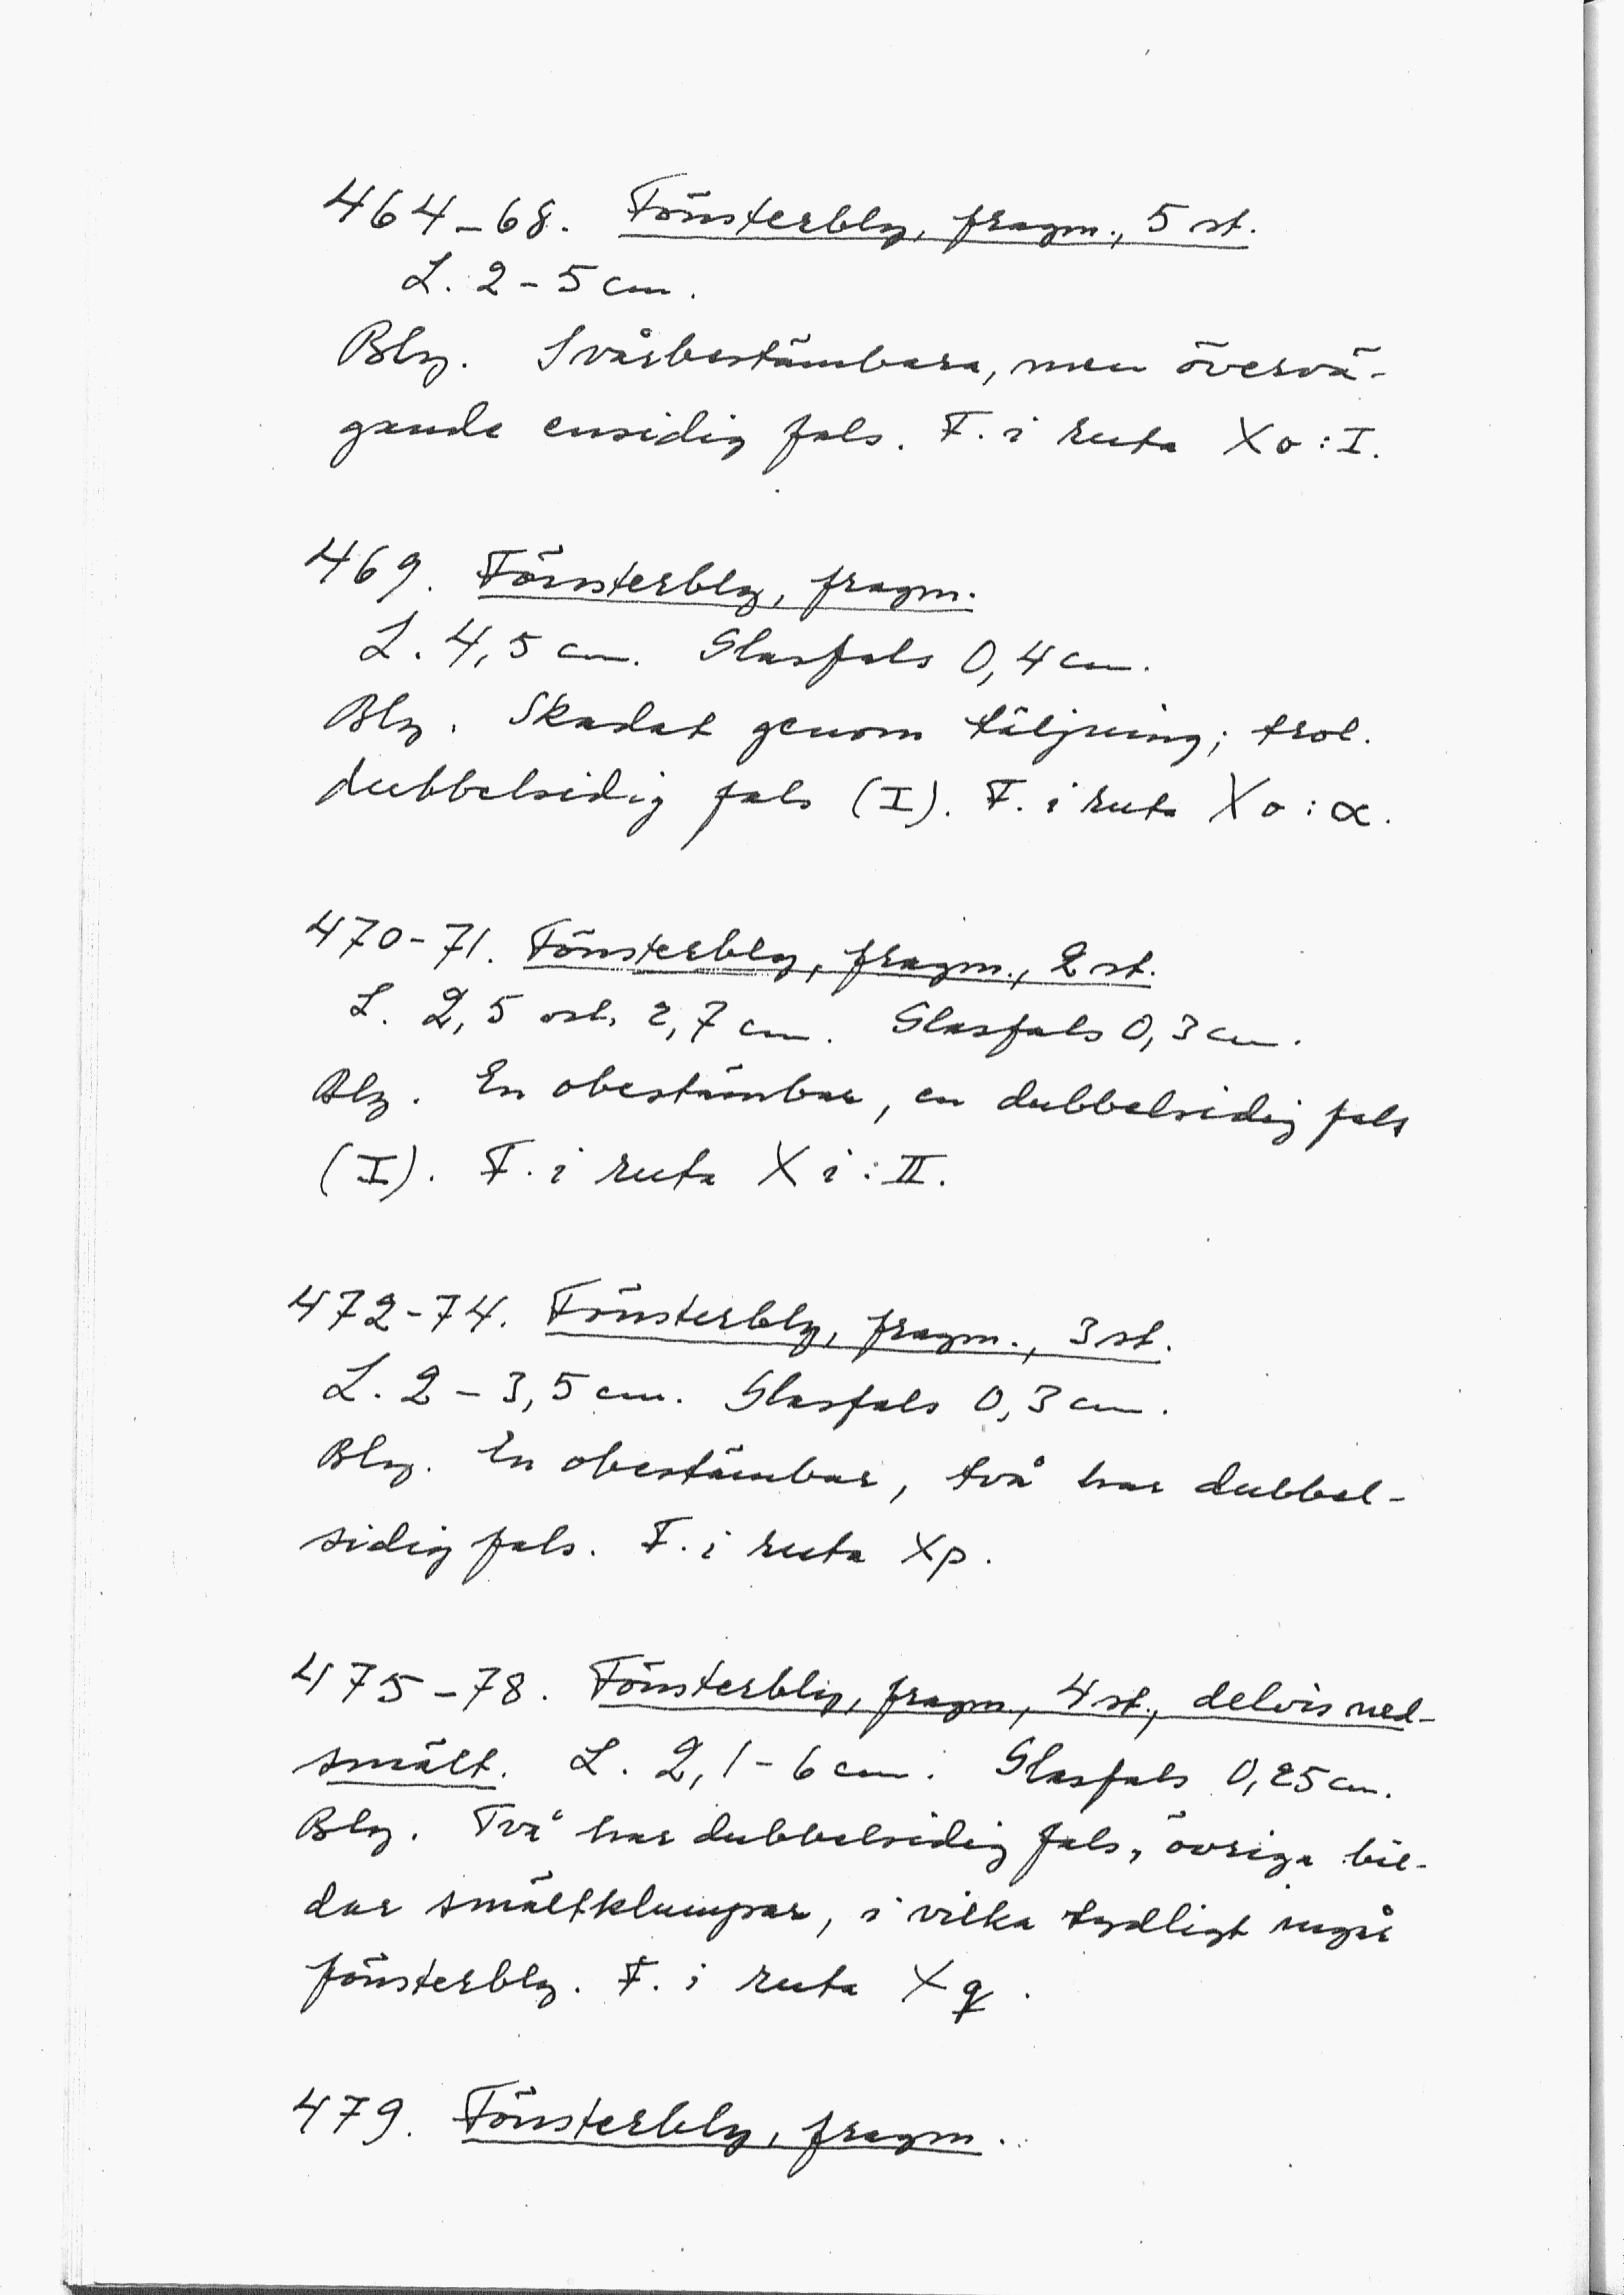 464-68. Fönsterbly, fragm., 5 st.
L. 2-5 cm.
Bly. Svårbestämbara, men övervä-
gande ensidig fals. F. i ruta Xo:I.
469. Fönsterbly, fragm.
L. 4,5 cm. Glasfals 0,4 cm.
Bly. Skadat genom täljning; trol.
dubbelsidig fals (I). F. i ruta Xo:α.
470-71. Fönsterbly, fragm., 2 st.
L. 2,5 och 2,7 cm. Glasfals 0,3 cm.
Bly. En obestämbar, en dubbelsidig fals
(I). F. i ruta Xi:II.
472-74. Fönsterbly, fragm., 3 st.
L. 2-3,5 cm. Glasfals 0,3 cm.
Bly. En obestämbar, två har dubbel-
sidig fals. F. i ruta Xp.
475-78. Fönsterbly, fragm., 4 st., delvis ned-
smält. L. 2,1-6 cm. Glasfals 0,25 cm.
Bly. Två har dubbelsidig fals, övriga bil-
dar smältklumpar, i vilka tydligt ingår
fönsterbly. F. i ruta Xq.
479. Fönsterbly, fragm.